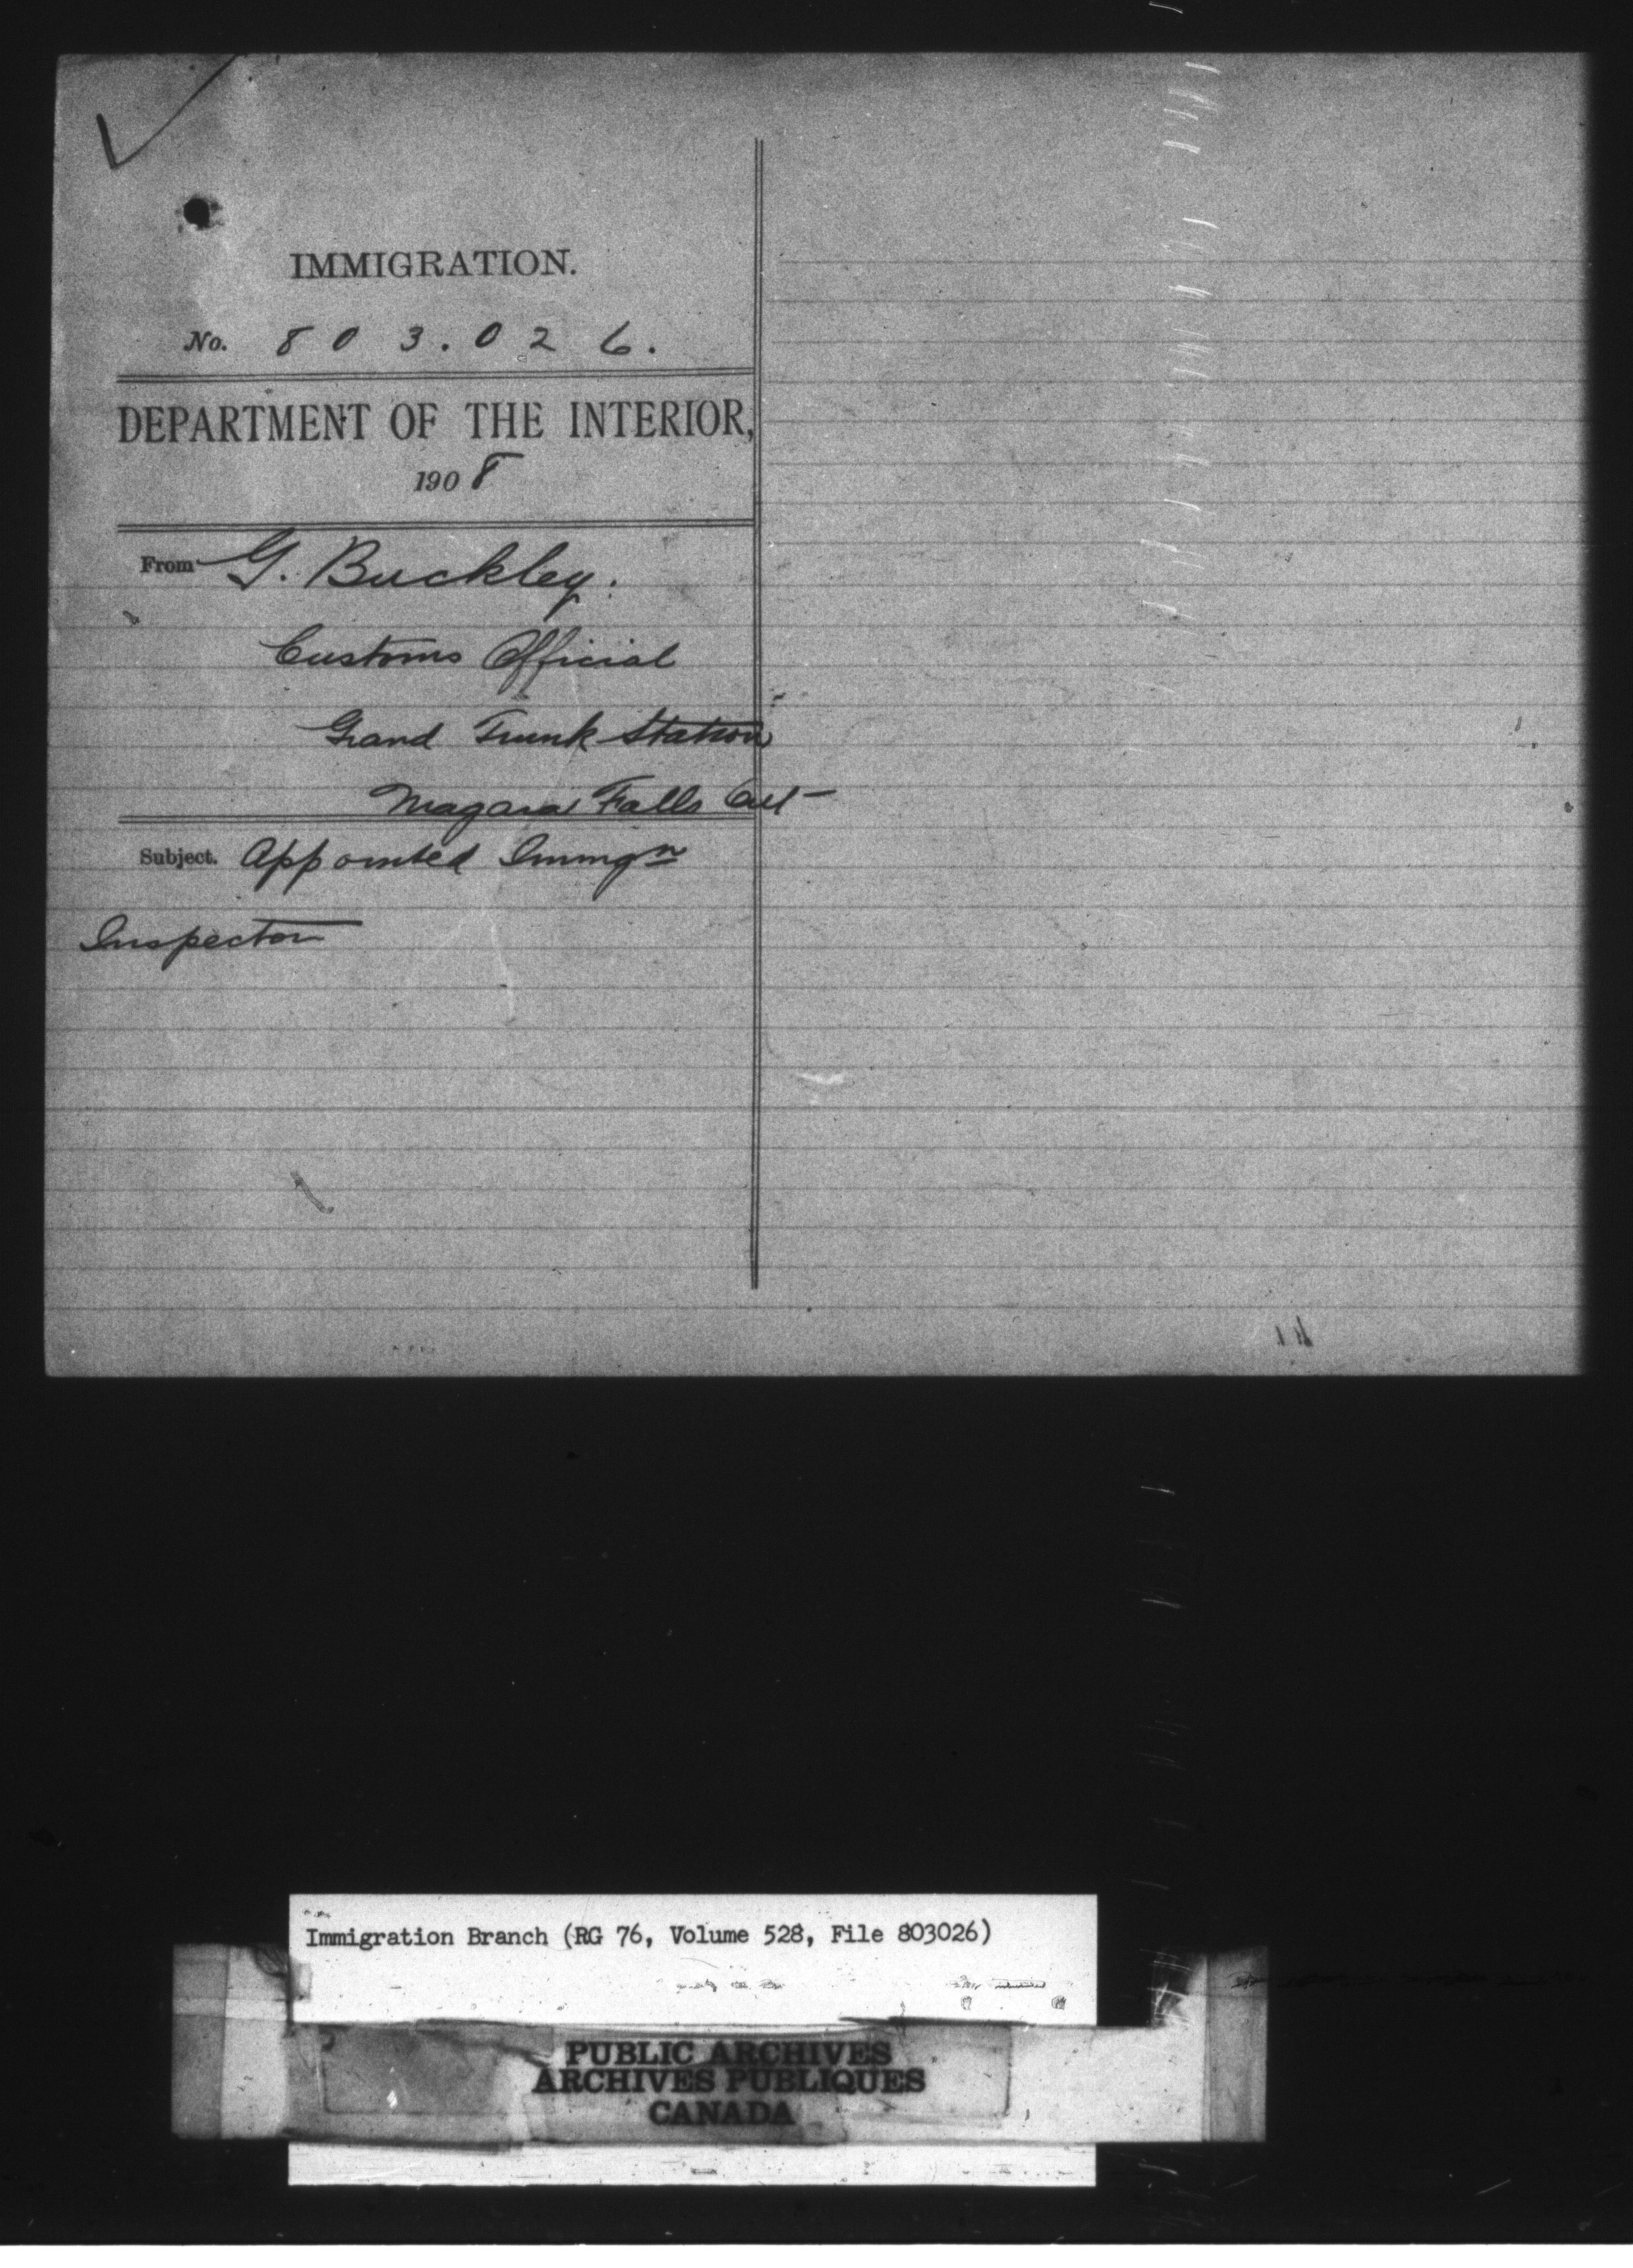 IMMIGRATION.
No. 803.026.
DEPARTMENT OF THE INTERIOR,
1908
From G. Buckley.
Customs Official
Grand Trunk Station
Niagara Falls Ont
Subject. Appointed Immgn
Inspector
Immigration Branch (RG 76, Volume 528, File 803026)
PUBLIC ARCHIVES
ARCHIVES PUBLIQUES
CANADA